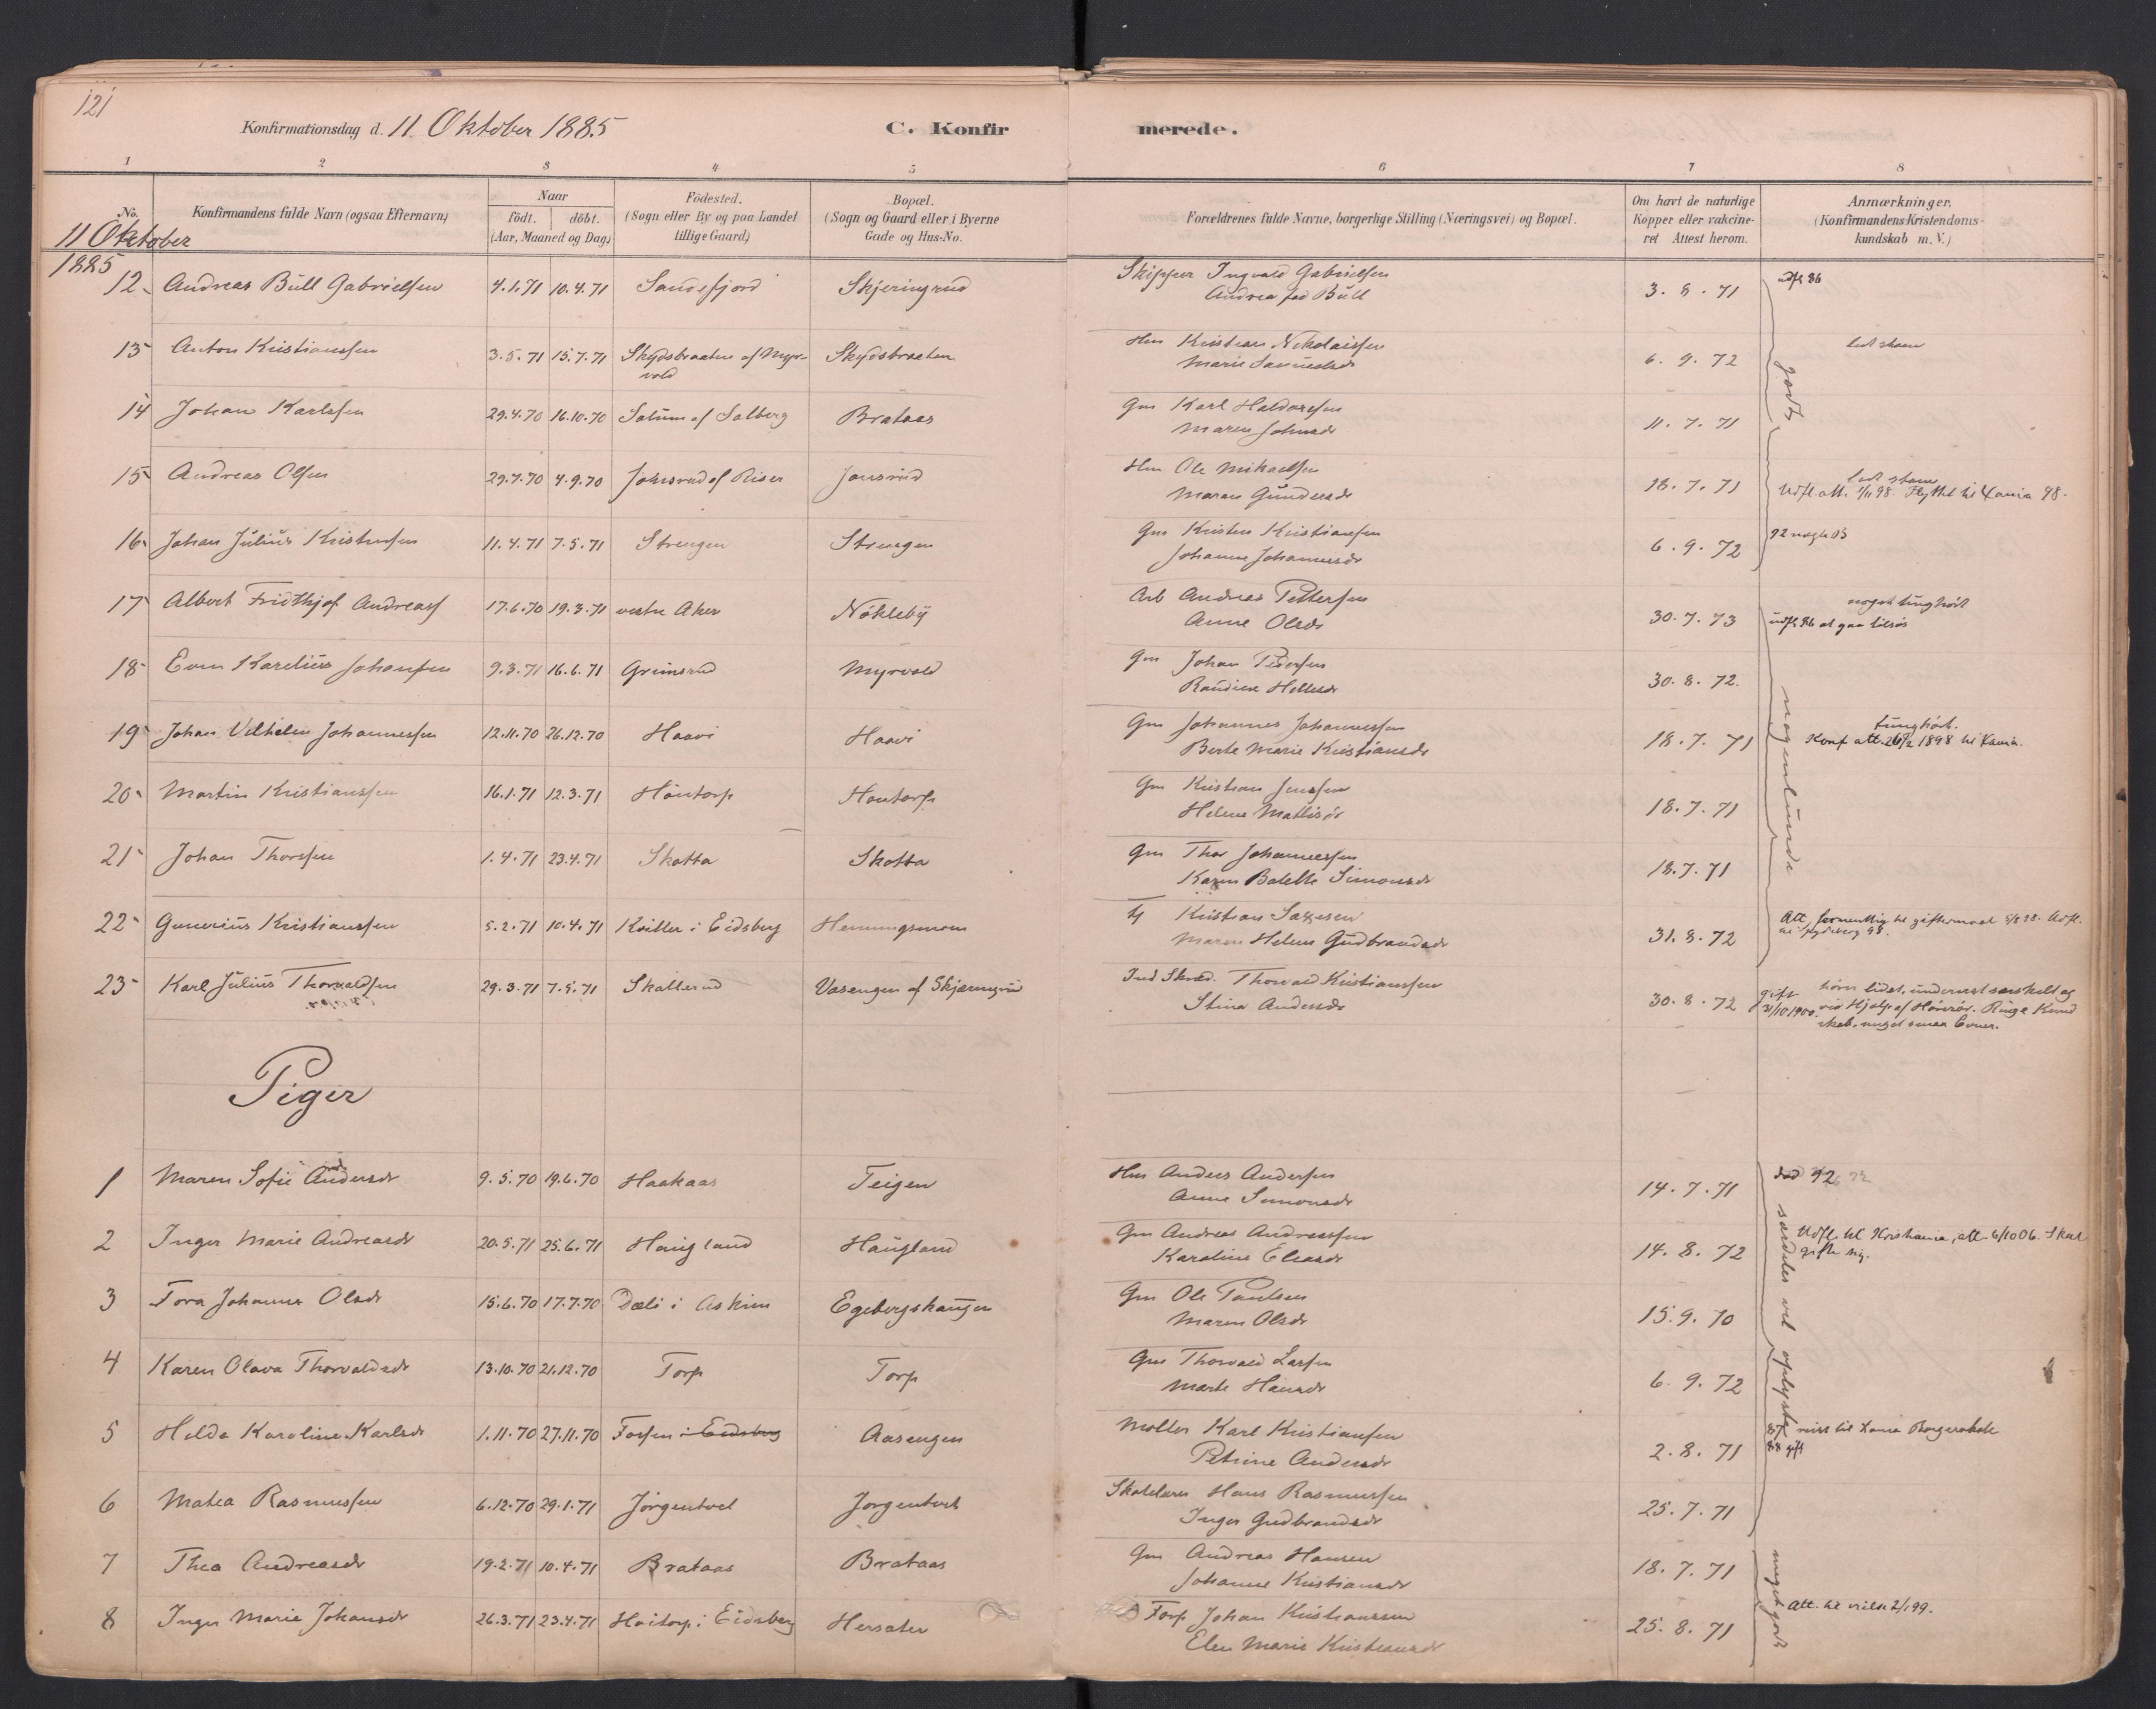 121
Konfirmationsdag d. 11 Oktober 1885
C. Konfirmerede.
1 2 3 4 5 6 7 8
No.
Konfirmandens fulde Navn (ogsaa Efternavn)
Naar
födt. döbt.
(Aar, Maaned og Dag)
Födested.
(Sogn eller By og paa Landet
tillige Gaard)
Bopæl.
(Sogn og Gaard eller i Byerne
Gade og Hus-No.
Forældrenes fulde Navne, borgerlige Stilling (Næringsvei) og Bopæl.
Om havt de naturlige
Kopper eller vakcine-
ret Attest herom.
Anmærkninger,
(Konfirmandens Kristendoms-
kundskab m. V.)
11 Oktober
1885
12 Andreas Bull Gabrielsen 4.1.71 10.4.71 Sandefjord Skjeringrud Skipper Ingvald Gabrielsen 3. 8. 71
Andrea fød Bull
godt
13 Anton Kristianssen 3.5.71 15.7.71 Skydsbraaten af Myr- Skydsbraaten Hm Kristian Nikolaissen 6. 9. 72
vold Marie Samuelsdr
14 Johan Karlssen 29.4.70 16.10.70 Solum af Solberg Brataas Gm Karl Haldorssen 11. 7. 71
Maren Johnsdr
15 Andreas Olsen 29.7.70 4.9.70 Johnsrud af Riser Jonsrud Hm Ole Mikaelsen 18. 7. 71
Maren Gundersdr Udfl. att. 1/11 98 Flyttet til Xania 98.
16 Johan Julius Kristensen 11.4.71 7.5.71 Strengen Strengen Gm Kristen Kristiansen 6. 9. 72
Johanne Johannesdr
17 Albert Fridthjof Andreass 17.6.70 19.3.71 vestre Aker Nökleby Arb Andreas Pettersen 30. 7. 73 noget tunghört
Anne Olsdr udfl 86 at gaa tilsös
18 Even Karelius Johansen 9.3.71 16.6.71 Grimsrud Myrvold Gm Johan Pedersen 30. 8. 72.
Randine Hellesdr
nogenlunde
19 Johan Vilhelm Johannessen 12.11.70 26.12.70 Haavi Haavi Gm Johannes Johannessen 18. 7. 71 tunghört.
Berte Marie Kristiansdr Konf att. 26/2 1898 til Xania.
20 Martin Kristianssen 16.1.71 12.3.71 Höntorp Höntorp Gm Kristian Jenssen 18. 7. 71
Helene Mathisdr
21 Johan Thorssen 1.4.71 23.4.71 Skotta Skotta Gm Thor Johannessen 18. 7. 71
Karen Bolette Simonsdr
22 Gunerius Kristianssen 5.2.71 10.4.71 Kviller i Eidsberg Henningsmoen Kristian 31. 8. 72
Maren Helene Gudbrandsdr
23 Karl Julius Thorvaldsen 29.3.71 7.5.71 Skallerud Vasengen af Skjæringrud Ind Skræd. Thorvald Kristianssen 30. 8. 72 gift hörer lidet, undervist særskilt og
Stina Andersdr 3/10 1900. ved Hjælp af Hörerör. Ringe Kund
skab, meget smaa Evner.
Piger
1 Maren Sofie Andersdr 9.5.70 19.6.70 Haakaas Teigen Hm Anders Andersen 14. 7. 71 död 92
Anne Simonsdr
særdeles vel oplyste
2 Inger Marie Andreasdr 20.5.71 25.6.71 Haugland Haugland Gm Andreas Andreassen 14. 8. 72 Udfl. til Kristiania, att. 6/10 06. Skal
Karoline Eliasdr gifte sig.
3 Tora Johanne Olsdr 15.6.70 17.7.70 Dæli i Askim Egebergshaugen Gm Ole Paulsen 15. 9. 70
Maren Olsdr
4 Karen Olava Thorvaldsdr 13.10.70 21.12.70 Torp Torp Gm Thorvald Larsen 6. 9. 72
Marte Hansdr
5 Helda Karoline Karlsdr 1.11.70 27.11.70 Forsen i Eidsberg Aasengen Möller Karl Kristiansen 2. 8. 71
Petrine Andersdr 88 gift
6 Matea Rasmussen 6.12.70 29.1.71 Jörgentvet Jörgentvet Skolelærer Hans Rasmussen 25. 7. 71
Inger Gudbrandsdr
7 Thea Andreasdr 19.2.71 10.4.71 Brataas Brataas Gm Andreas Hansen 18. 7. 71
Johanne Kristiansdr
meget godt
8 Inger Marie Johansdr 26.3.71 23.4.71 Hoitorp i Eidsberg Hersater Forp Johan Kristianssen 25. 8. 71 Att. til vielse 2/1 99.
Elen Marie Kristiansdr